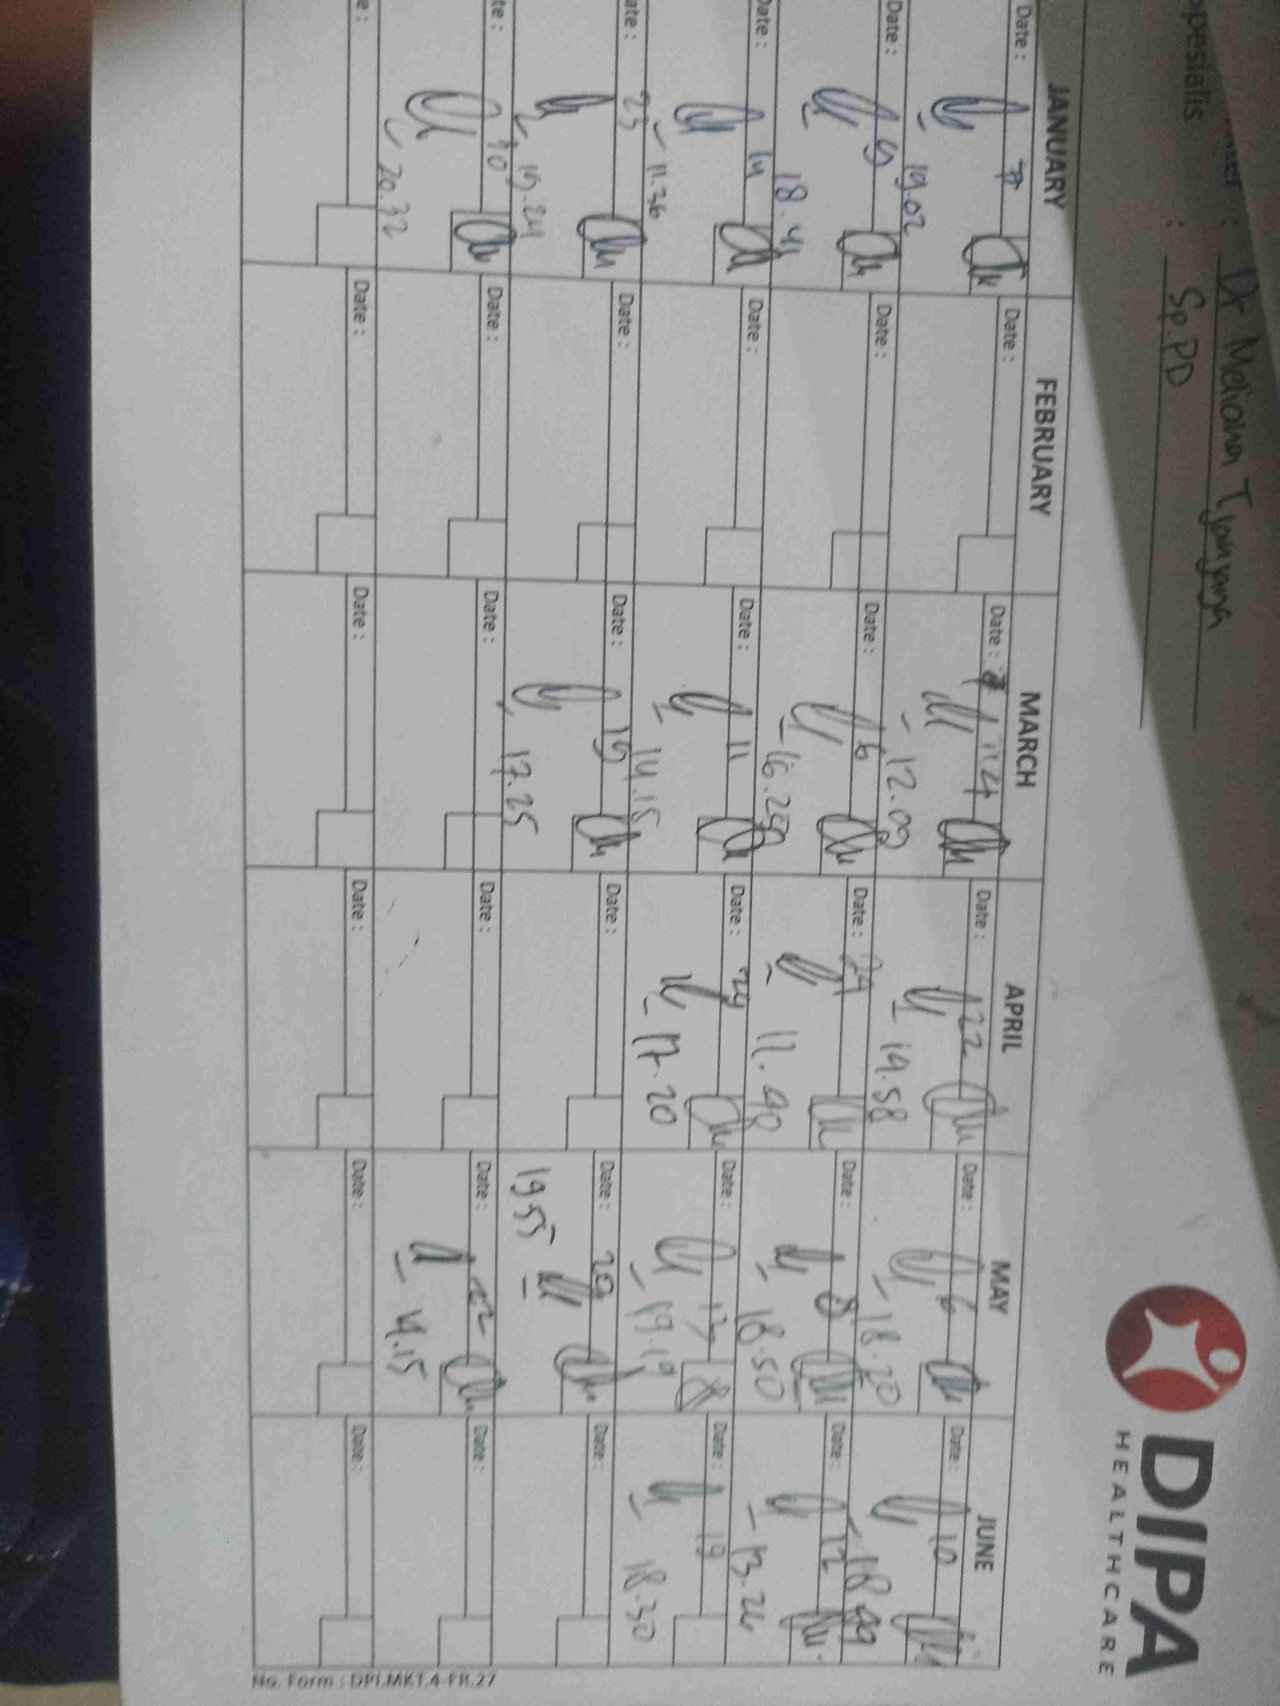 : Dr Meliana Tjanjanga
spesialis : Sp.PD
DIPA
HEALTHCARE
JANUARY FEBRUARY MARCH APRIL MAY JUNE
Date : 7 Date : Date : 4 Date : 22 Date : 6 Date : 10
19.02 12.09 14.58 18.20 18.49
Date : 9 Date : Date : 6 Date : 24 Date : 8 Date : 12
18.41 16.25 11.40 18.50 13.26
Date : 14 Date : Date : 11 Date : 29 Date : 13 Date : 19
11.36 14.15 17.20 19.19 18.30
Date : 23 Date : Date : 19 Date : Date : 20 Date :
19.24 17.25 19.55
Date : 30 Date : Date : Date : Date : 22 Date :
20.32 14.15
Date : Date : Date : Date : Date :
No. Form : DPI.MKT.4-FR.27